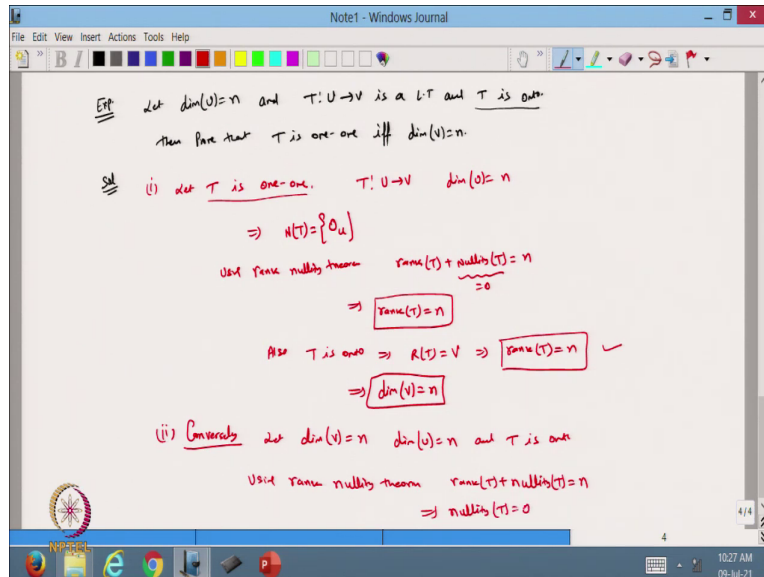 Note1 - Windows Journal
File Edit View Insert Actions Tools Help
B I
Exp. Let dim(U)=n and T: U→V is a L.T and T is onto.
then Prove that T is one-one iff dim(V)=n.
Sol (i) Let T is one-one. T: U→V dim(U)=n
⇒ N(T)={0u}
Using rank nullity theorem rank(T)+nullity(T)=n
=0
⇒ rank(T)=n
Also T is onto ⇒ R(T)=V ⇒ rank(T)=n ✓
⇒ dim(V)=n
(ii) Conversely Let dim(V)=n dim(U)=n and T is onto
Using rank nullity theorem rank(T)+nullity(T)=n
⇒ nullity(T)=0
NPTEL
4/4
4
10:27 AM
09-Jul-21